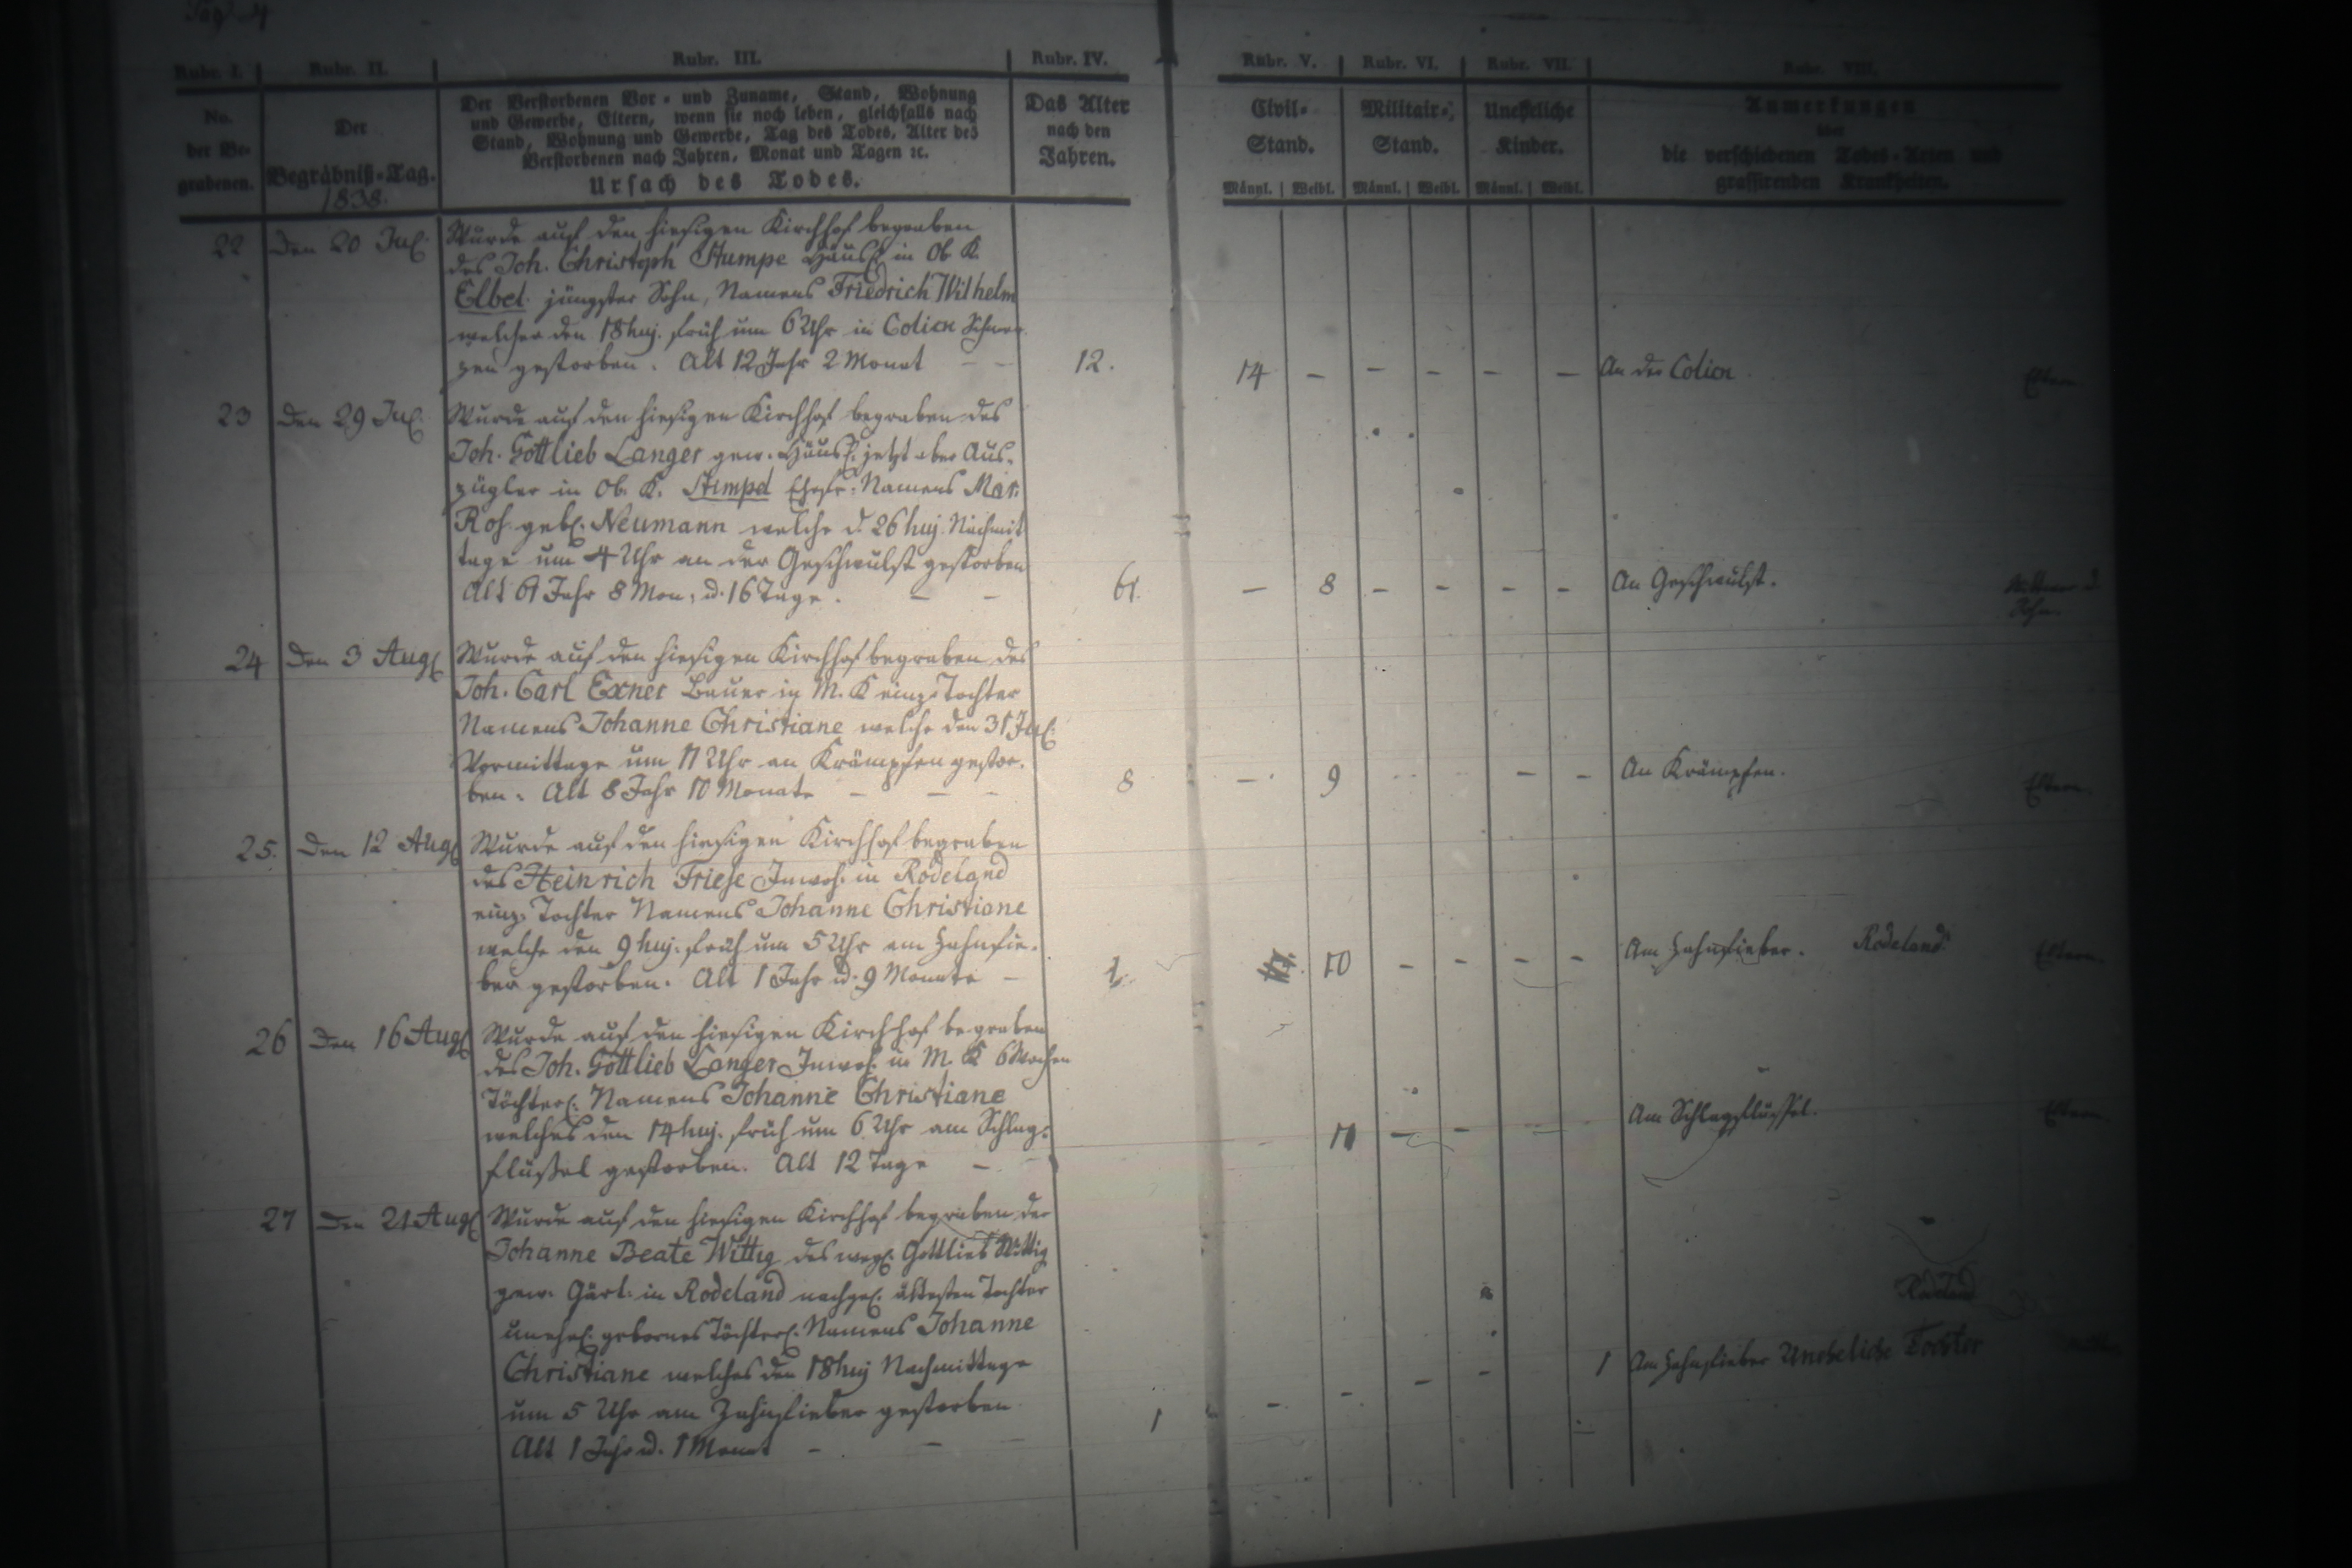 Pag. 4
Rubr. I. Rubr. II. Rubr. III. Rubr. IV. Rubr. V. Rubr. VI. Rubr. VII. Rubr. VIII.
No.
der Be-
grabenen.
Der
Begräbniß-Tag.
1838.
Der Verstorbenen Vor- und Zuname, Stand, Wohnung
und Gewerbe, Eltern, wenn sie noch leben, gleichfalls nach
Stand, Wohnung und Gewerbe, Tag des Todes, Alter des
Verstorbenen nach Jahren, Monat und Tagen ꝛc.
Ursach des Todes.
Das Alter
nach den
Jahren.
Civil-
Stand.
Männl. Weibl.
Militair-
Stand.
Männl. Weibl.
Uneheliche
Kinder.
Männl. Weibl.
Anmerkungen
über
die verschiedenen Todes-Arten und
grassirenden Krankheiten.
22 Den 20 Jul. Wurde auf den hiesigen Kirchhof begraben
des Joh. Christoph Stumpe Häusl. in Ob. K.
Elbel. jüngster Sohn, Namens Friedrich Wilhelm
welcher den 18 huj. früh um 6 Uhr in Colick Schmer
zen gestorben. Alt 12 Jahr 2 Monat – –
12. 14 – – – – – An der Colick Eltern
23 Den 29 Jul. Wurde auf den hiesigen Kirchhof begraben des
Joh. Gottlieb Langer gew. Häusl. jetzt aber Aus-
zügler in Ob. K. Stimpel Ehefr: Namens Mar.
Ros. gebl. Neumann welche d. 26 huj. Nachmit
tags um 4 Uhr an der Geschwulst gestorben
Alt 61 Jahr 8 Mon: u. 16 Tage. – –
61. – 8 – – – – An Geschwulst.
24 Den 3 Aug. Wurde auf den hiesigen Kirchhof begraben des
Joh. Carl Exner Bauer in M. K einz. Tochter
Namens Johanne Christiane welche den 31 Jul.
Vormittags um 11 Uhr an Krämpfen gestor-
ben. Alt 8 Jahr 10 Monate – – –
8 – 9 – – An Krämpfen. Eltern
25. Den 12 Aug. Wurde auf den hiesigen Kirchhof begraben
des Heinrich Friese Inwoh. in Rodeland
einz. Tochter Namens Johanne Christiane
welche den 9 huj. früh um 5 Uhr am Zahnfie-
ber gestorben. Alt 1 Jahr u. 9 Monate –
1. 10 – – – – Am Zahnfieber. Rodeland Eltern
26 Den 16 Aug. Wurde auf den hiesigen Kirchhof begraben
des Joh. Gottlieb Langer Inwoh. in M. K 6 Wochen
Töchterl. Namens Johanne Christiane
welches den 14 huj. früh um 6 Uhr am Schlag-
flüßel gestorben. Alt 12 Tage –
11 – – Am Schlagflüßel. Eltern
27 Den 21 Aug. Wurde auf den hiesigen Kirchhof begraben der
Johanne Beate Wittig des weyl. Gottlieb Wittig
gew. Gärt. in Rodeland nachgel. ältesten Tochter
unehel. gebornes Töchterl. Namens Johanne
Christiane welches den 18 huj Nachmittags
um 5 Uhr am Zahnfieber gestorben
Alt 1 Jahr u. 1 Monat – –
1 – – – – 1 Am Zahnfieber Uneheliche Tochter
Rodeland